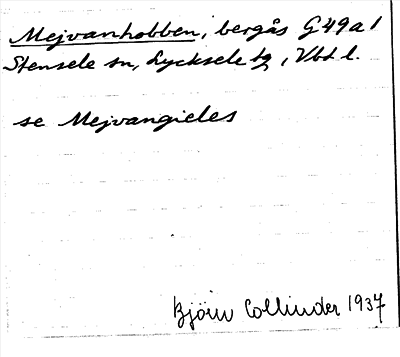 Mejvanhobben, bergås G49a1
Stensele sn, Lycksele tg, Vbt l.
se Mejvangieles
Björn Collinder 1937